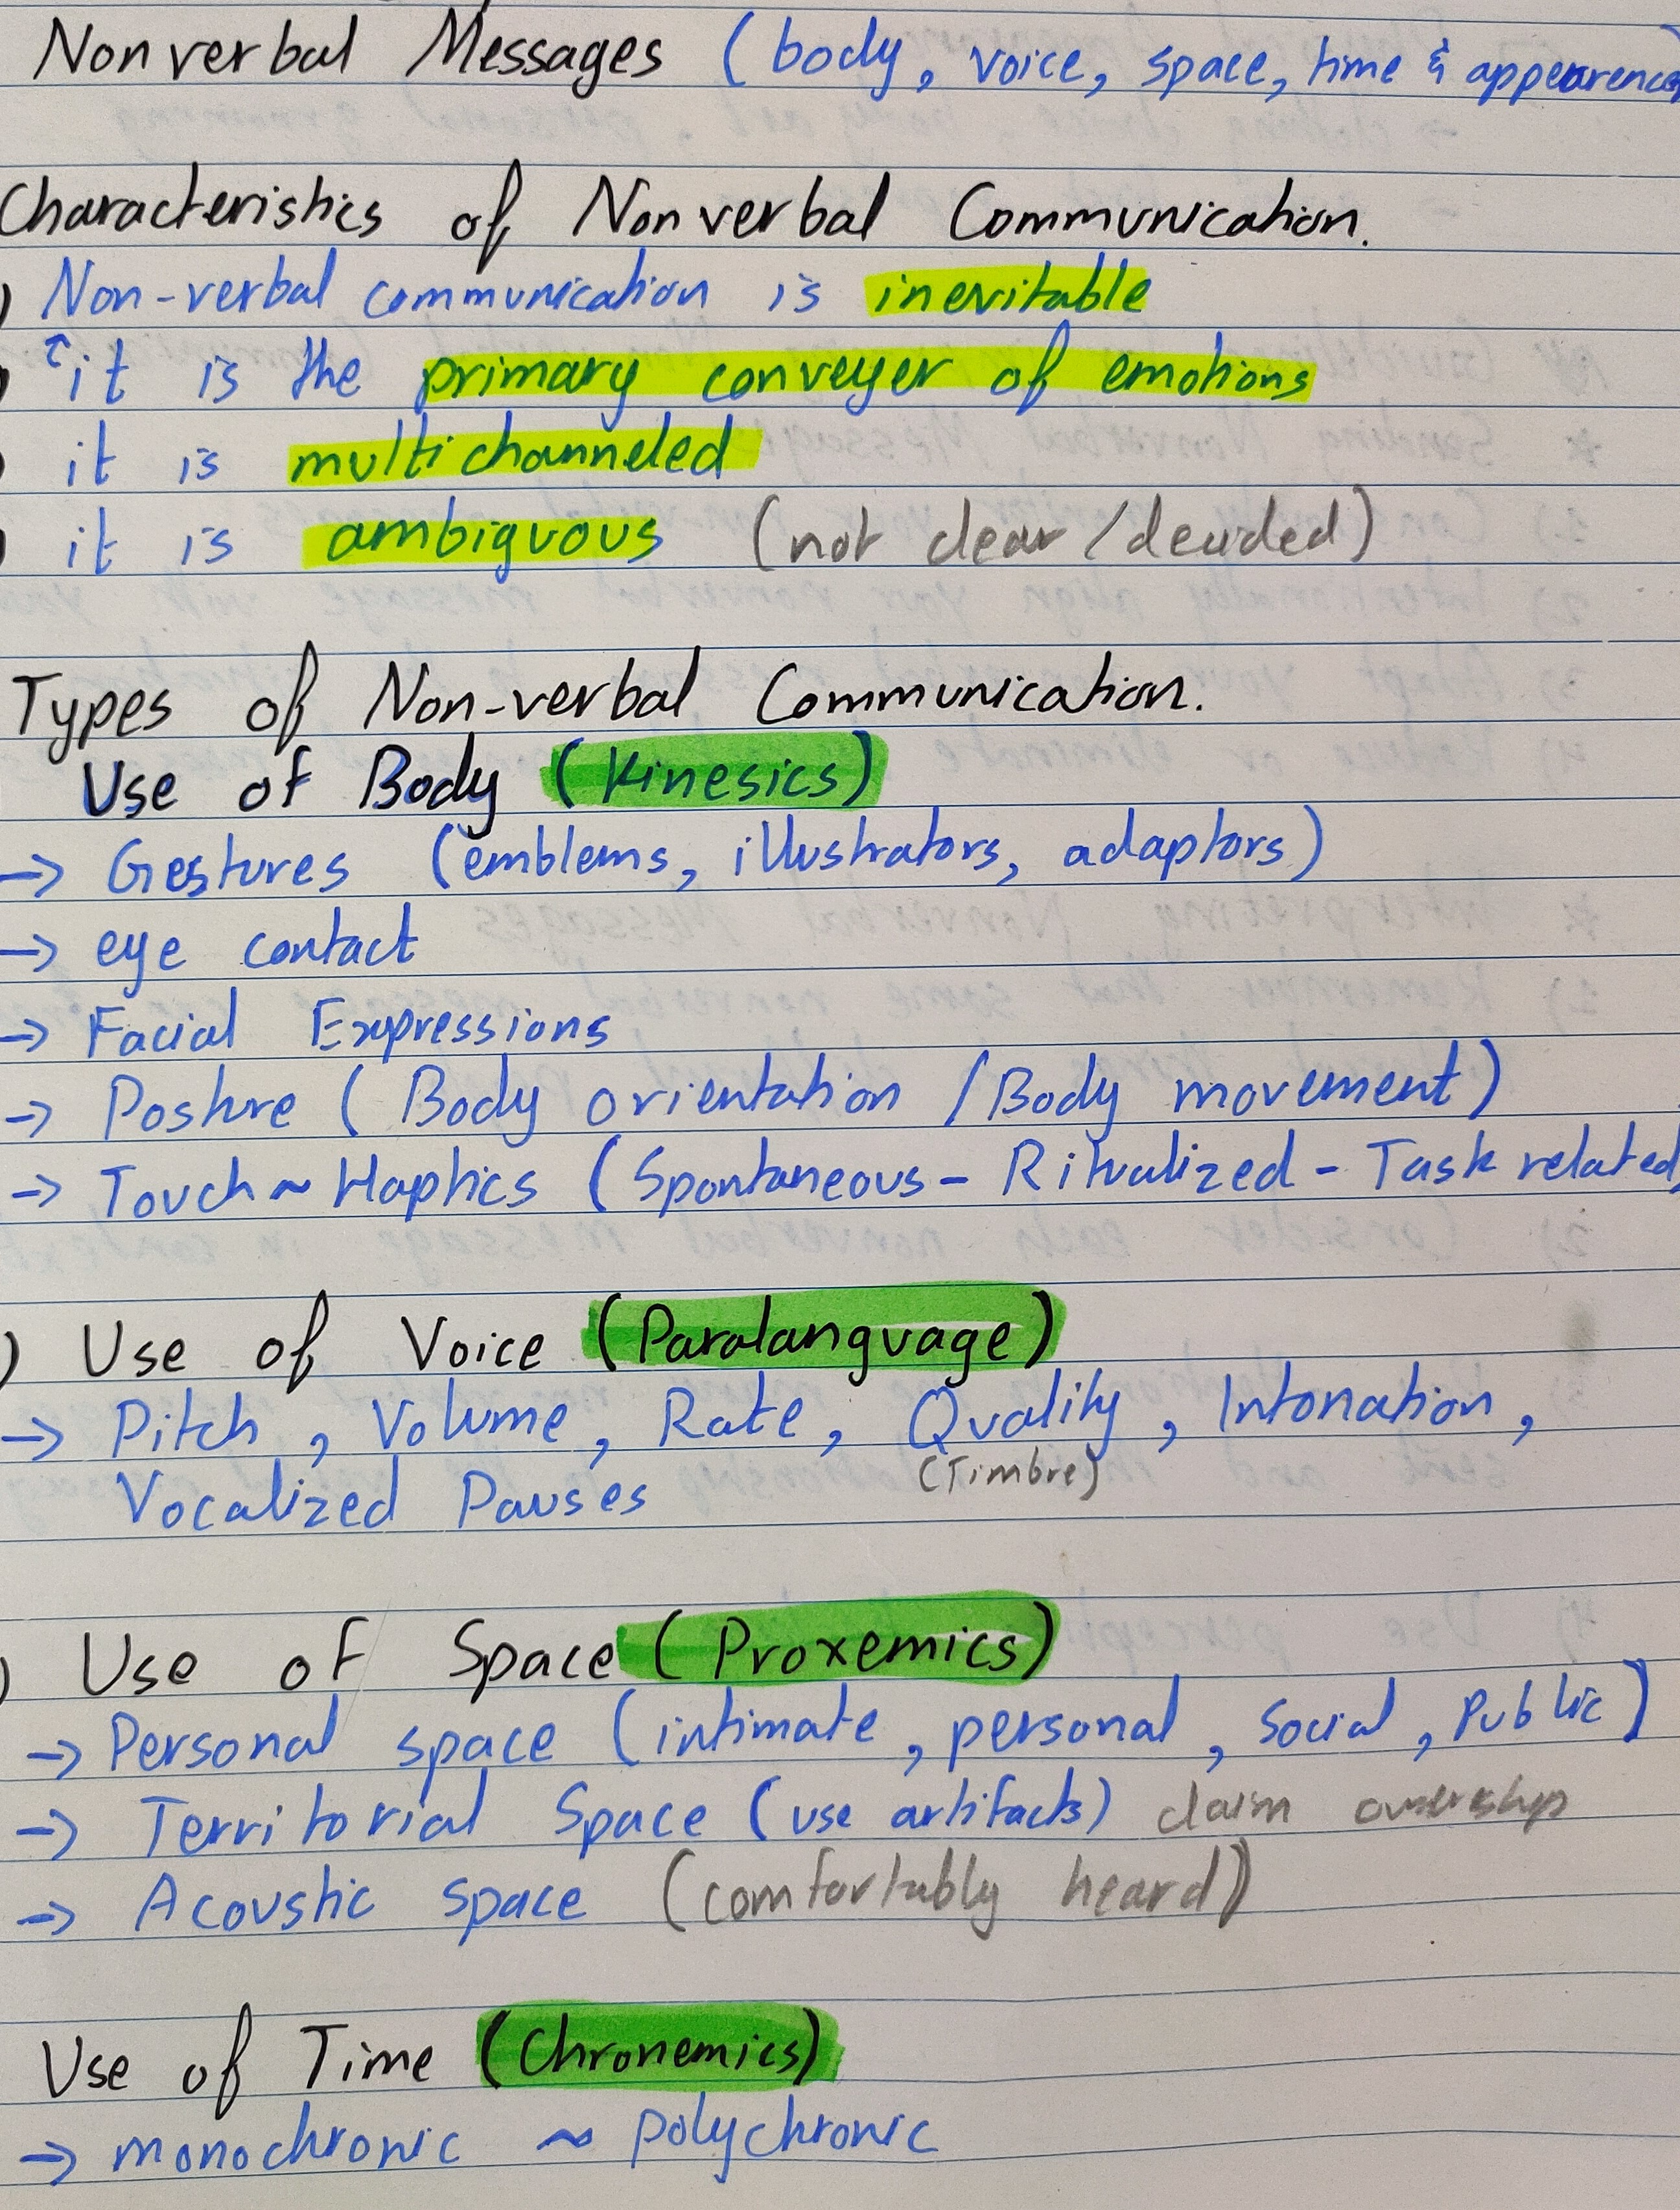 Nonverbal Messages (body, voice, space, time & appearence)
Characteristics of Nonverbal Communication.
) Non-verbal communication is inevitable
) it is the primary conveyer of emotions
) it is multichanneled
) it is ambiguous (not clear/decided)
Types of Non-verbal Communication.
Use of Body (Kinesics)
→ Gestures (emblems, illustrators, adaptors)
→ eye contact
→ Facial Expressions
→ Posture (Body orientation / Body movement)
→ Touch ~ Haptics (Spontaneous - Ritualized - Task related)
) Use of Voice (Paralanguage)
→ Pitch, Volume, Rate, Quality, Intonation,
(Timbre)
Vocalized Pauses
) Use of Space (Proxemics)
→ Personal space (intimate, personal, social, public)
→ Territorial Space (use artifacts) claim ownership
→ Acoustic space (comfortably heard)
Use of Time (Chronemics)
→ monochronic ~ polychronic